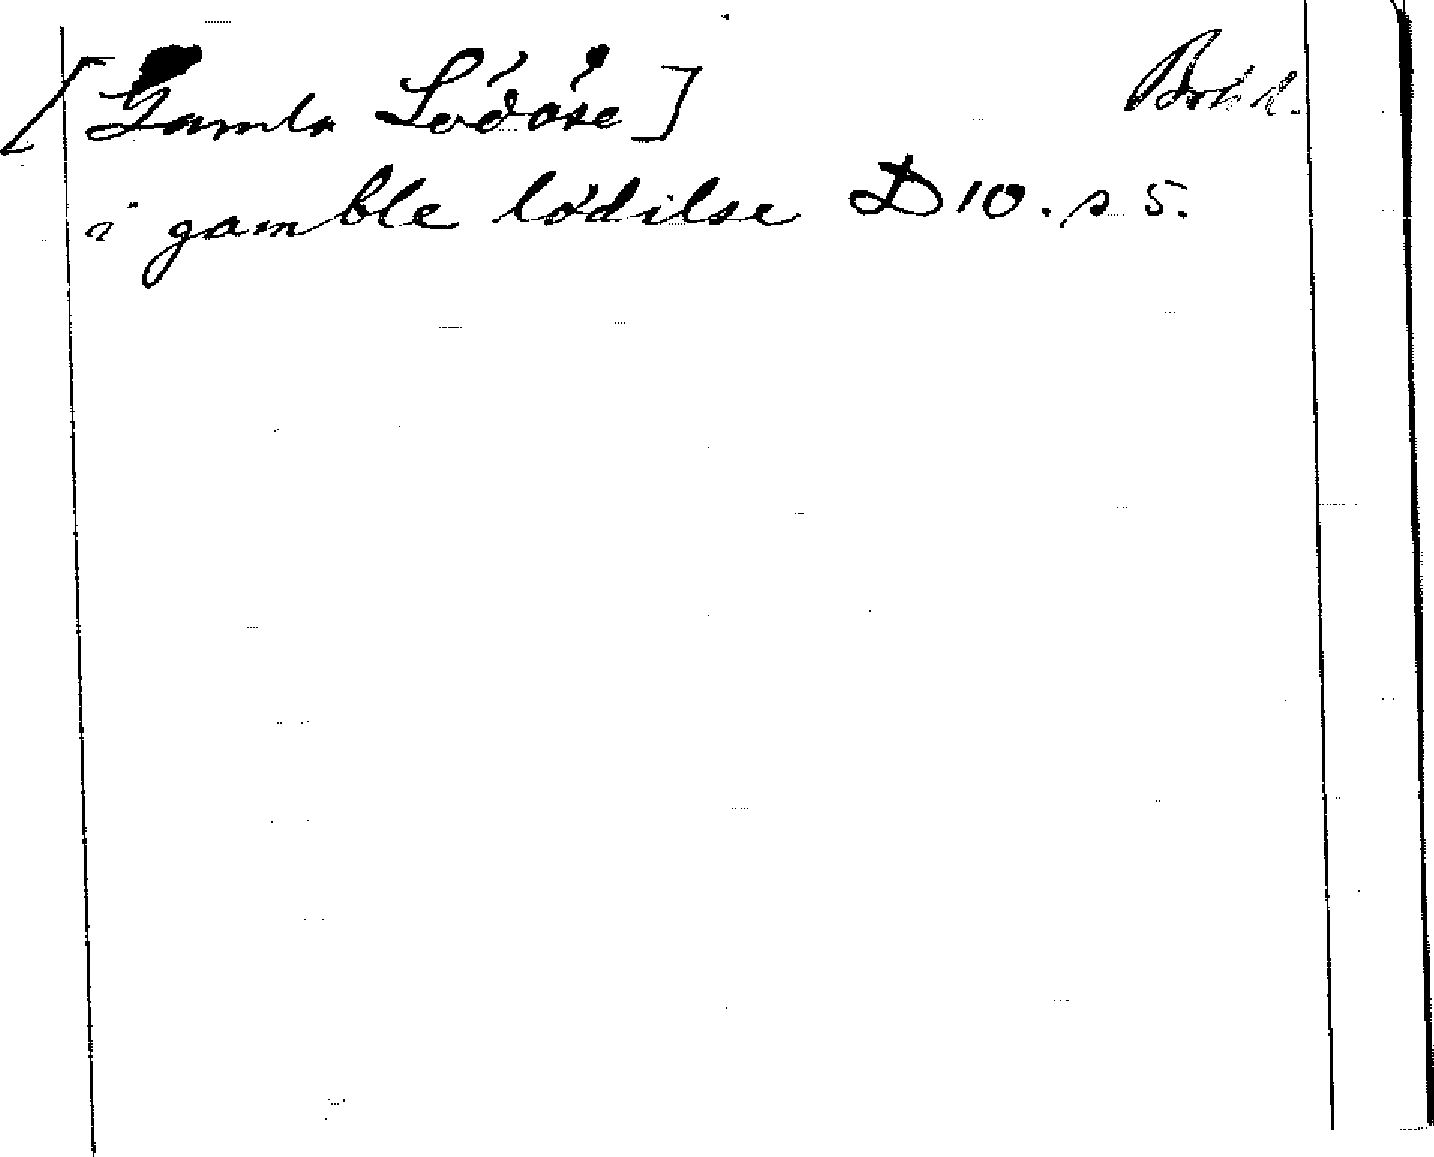 [Gamla Lödöse] Boh l.
i gamble lödilse D 10. s 5.